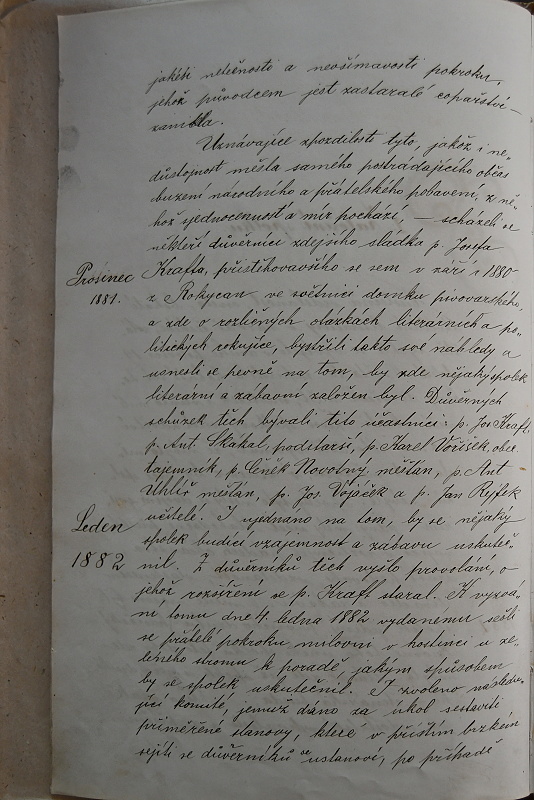 jakési netečnosti a nevšímavosti pokroku,
jehož původcem jest zastaralé copařství –
zanikla.
Uznávajíce zpozdilosti tyto, jakož i ne„
důstojnost města samého postrádajícího občas
buzení národního a přátelského pobavení, z ně„
hož sjednocennost a mír pochází, – scházeli se
někteří důvěrníci zdejšího sládka p. Josefa
Prosinec
1881.
Krafta, přistěhovavšího se sem v září r 1880
z Rokycan ve světnici domku pivovarského,
a zde o rozličných otázkách literárních a po„
litických rokujíce, bystřili takto své náhledy a
usnesli se pevně na tom, by zde nějaký spolek
literarní a zábavní založen byl. Důvěrných
schůzek těch bývali tito účastníci: p. Jos Kraft,
p. Ant. Skákal, podstarší, p. Karel Voříšek, obec.
tajemník, p. Čeněk Novotný, měšťan, p. Ant
Uhlíř měšťan, p. Jos. Vojáček a p. Jan Rejfek
Leden
1882
učitelé. I ujednáno na tom, by se nějaký
spolek budící vzájemnost a zábavu uskuteč„
nil. Z důvěrníků těch vyšlo provolání, o
jehož rozšíření se p. Kraft staral. K vyzvá„
ní tomu dne 4. ledna 1882 vydanému sešli
se přátelé pokroku milovní v hostinci u ze„
leného stromu k poradě, jakým způsobem
by se spolek uskutečnil. I zvoleno následu„
jící komité, jemuž dáno za úkol sestaviti
přiměřené stanovy, které v příštím brzkém
sejití se důvěrníků se ustanoví, po případě